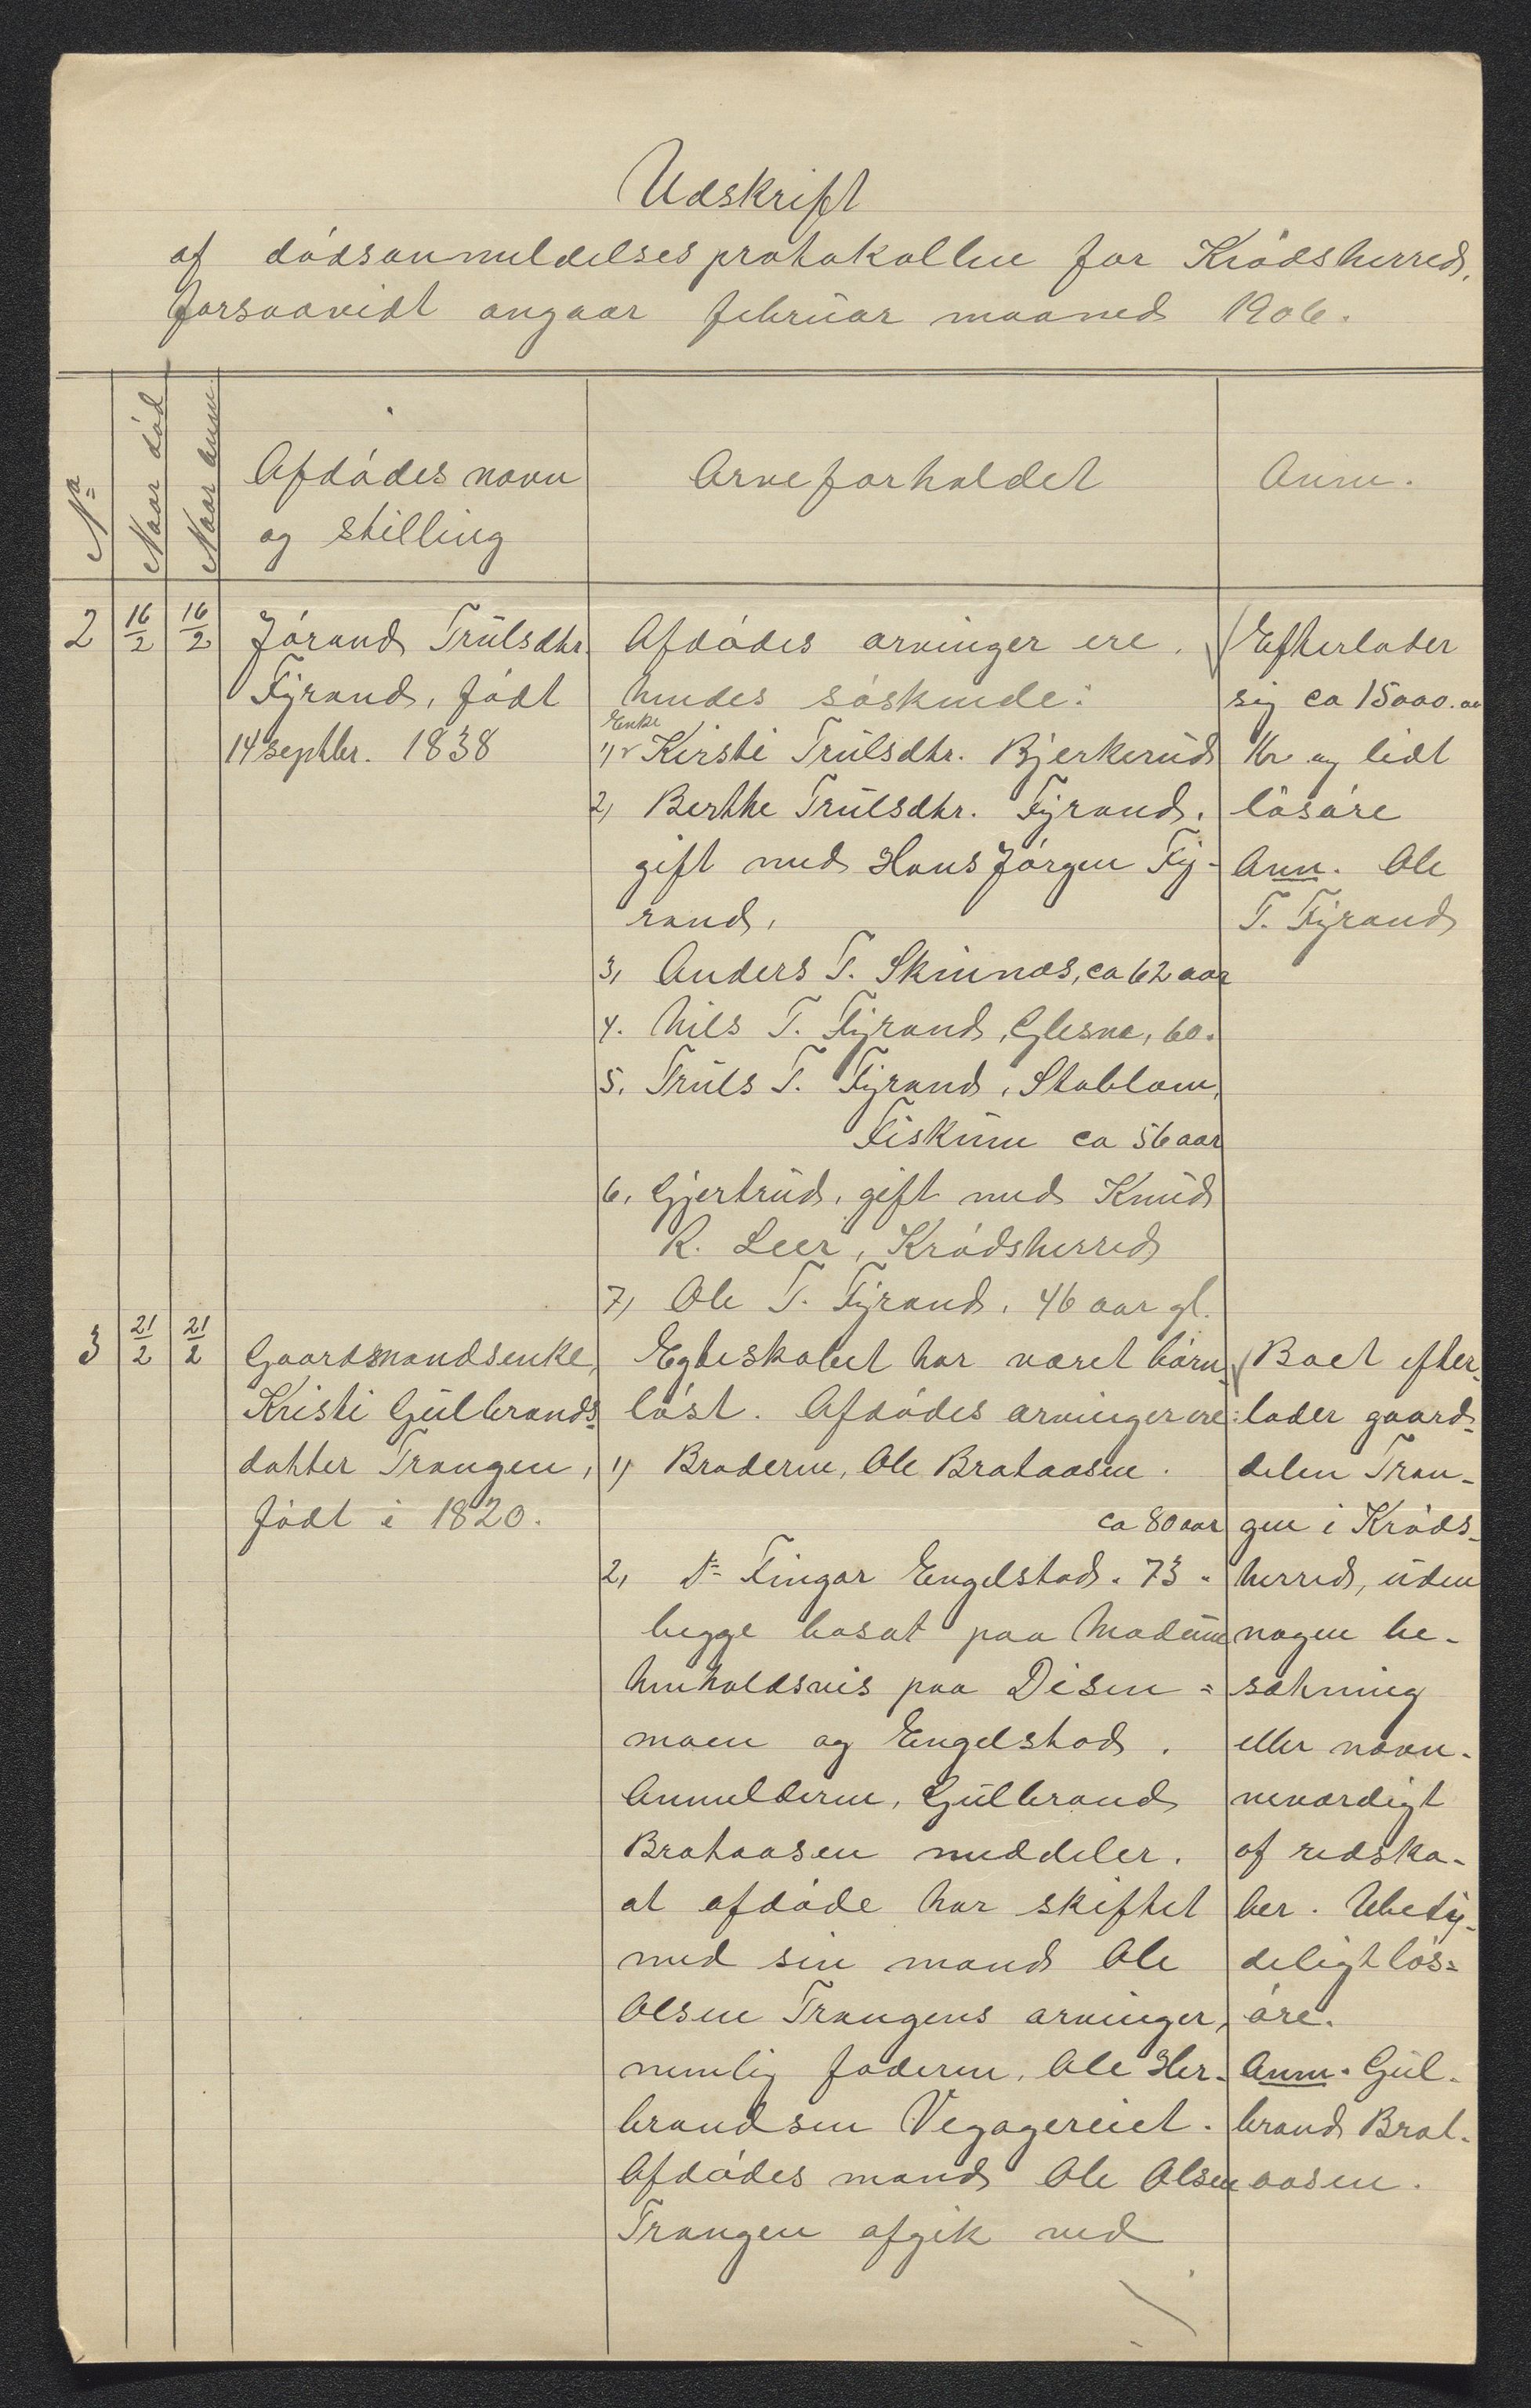 Udskrift
af dödsanmeldelsesprotokollen for Krödsherred,
forsaavidt angaar februar maaned 1906.
No
Naar död
Naar anm.
Afdödes navn
og stilling
Arveforholdet
Anm.
2
16/2
16/2
Jörand Trulsdtr.
Fyrand, födt
14 septbr. 1838
Afdödes arvinger ere
hendes söskende:
Enke
1) Kirsti Trulsdtr. Bjerkerud
2) Berthe Trulsdtr. Fyrand,
gift med Hans Jörgen Fy-
rand,
3, Anders T. Skinnes, ca 62 aar
4. Nils T. Fyrand, Glesne, 60.
5. Truls T. Fyrand, Stablum,
Fiskum ca 56 aar
6, Gjertrud, gift med Knud
R. Leer, Krödsherred
7, Ole T. Fyrand, 46 aar gl.
Efterlader
sig ca 15000.00
Kr og lidt
lösöre
Anm. Ole
T. Fyrand
3
21/2
21/2
Gaardmandsenke,
Kristi Gulbrands-
datter Trangen,
födt i 1820.
Egteskabet har været börn-
löst. Afdödes arvinger ere:
1) Broderen, Ole Brataasen.
ca 80 aar
2, Do Fingar Engelstad. 73 "
begge bosat paa Modum
henholdsvis paa Disen=
moen og Engelstad.
Anmelderen, Gulbrand
Brataasen meddeler,
at afdöde har skiftet
med sin mand Ole
Olsen Trangens arvinger,
nemlig faderen, Ole Her-
brandsen Vegagereiet.
Afdödes mand Ole Olsen
Trangen afgik ved
Boet efter-
lader gaard-
delen Tran-
gen i Kröds-
herred, uden
nogen be-
sætning
eller navn-
neværdigt
af redska-
ber. Ubety-
deligt lös=
öre.
Anm. Gul-
brand Brat-
aasen.